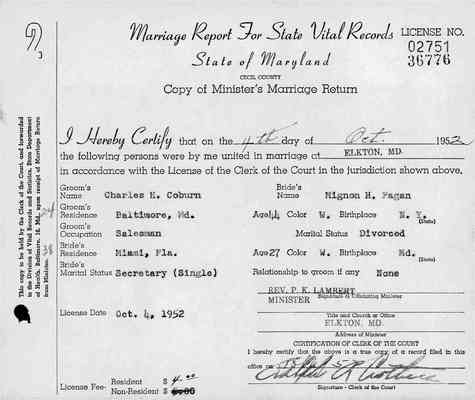 Marriage Report For State Vital Records
LICENSE NO.
02751
36776
State of Maryland
CECIL COUNTY
Copy of Minister's Marriage Return
I Hereby Certify that on the 4th day of Oct. 1952
the following persons were by me united in marriage at ELKTON, MD.
in accordance with the License of the Clerk of the Court in the jurisdiction shown above.
Groom's Name Charles E. Coburn Bride's Name Mignon H. Fagan
Groom's Residence Baltimore, Md. Age 44 Color W. Birthplace N. Y. (State)
Groom's Occupation Salesman Marital Status Divorced
Bride's Residence Miami, Fla. Age 27 Color W. Birthplace Md. (State)
Bride's Marital Status Secretary (Single) Relationship to groom if any None
REV. P. K. LAMBERT
MINISTER Signature of Officiating Minister
License Date Oct. 4, 1952
Title and Church or Office
ELKTON, MD.
Address of Minister
CERTIFICATION OF CLERK OF THE COURT
I hereby certify that the above is a true copy of a record filed in this
office on
License Fee- Resident $ 4.00
Non-Resident $ 5.00
Signature - Clerk of the Court
This copy to be held by the Clerk of the Court, and forwarded
to the Division of Vital Records and Statistics, State Department
of Health, Baltimore, 18, Md., upon receipt of Marriage Return
from Minister.